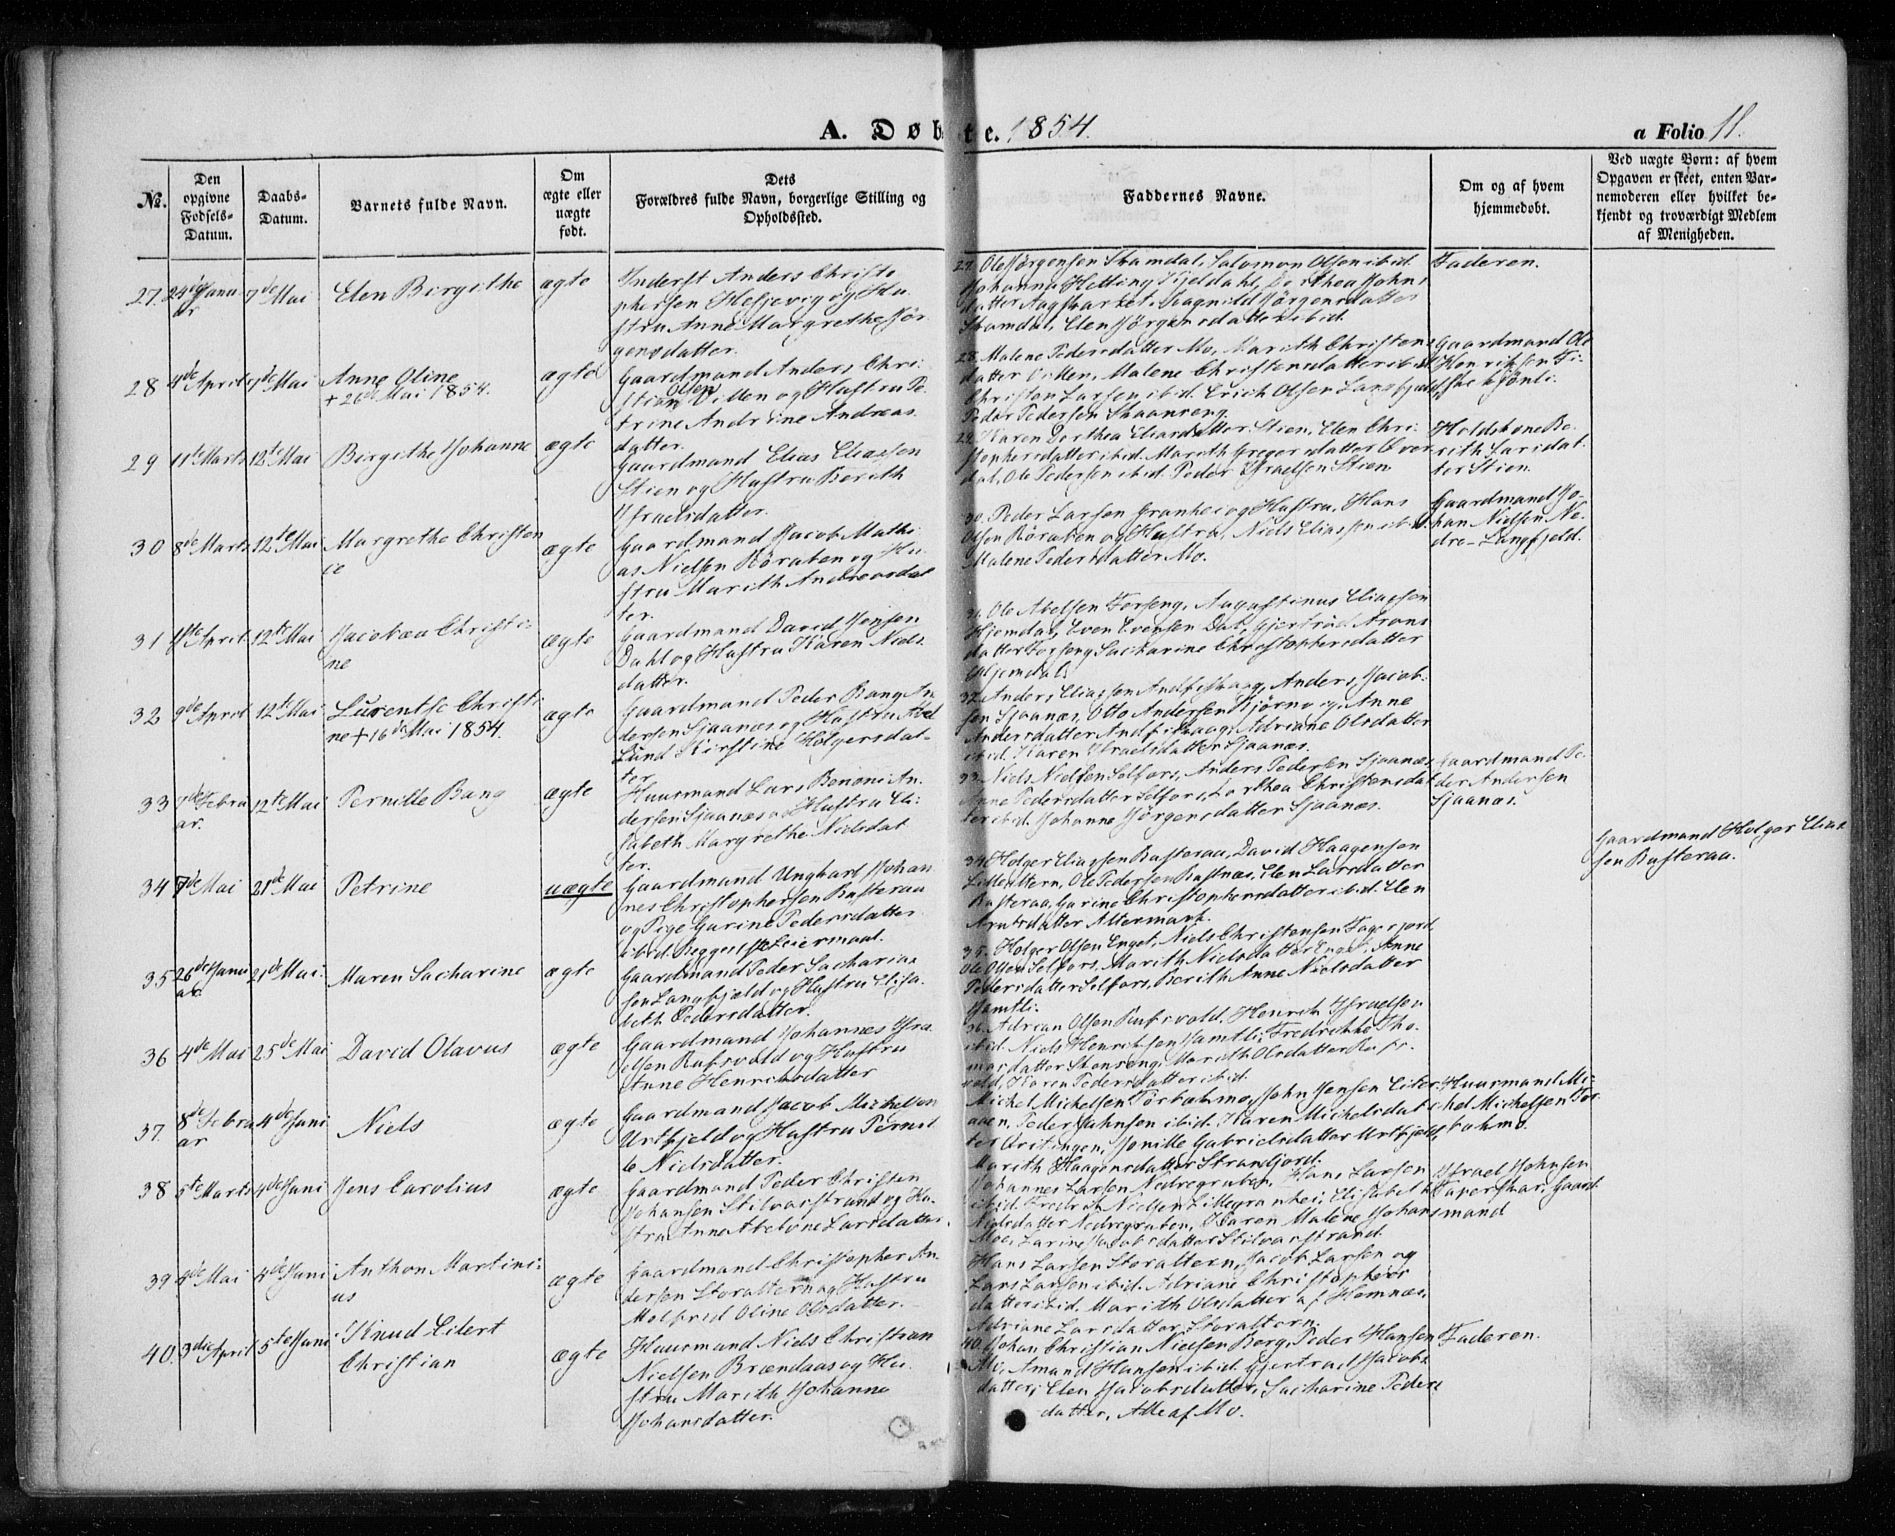 A. Døbte. 1854.
a Folio 11.
No.
Den opgivne Fødsels-Datum.
Daabs-Datum.
Barnets fulde Navn.
Om ægte eller uægte født.
Dets Forældres fulde Navn, borgerlige Stilling og Opholdssted.
Faddernes Navne.
Om og af hvem hjemmedøbt.
Ved uægte Børn: af hvem Opgaven er skeet, enten Barnemoderen eller hvilket bekjendt og troværdigt Medlem af Menigheden.
27. 24de Janu
ar
7de Mai
Elen Birgithe
ægte
Inderst Anders Christo
phersen Hessjevig og Hu
stru Anne Margrethe Jør
gensdatter.
27. Ole Jørgensen Skamdal, Salomon Olsen ibid.
Johanna Hetting Kjeldahl, Dorthea Johns
datter, Ragnild Jørgensdatter
Skamdal, Elen Jørgensdatter ibid.
Faderen.
28 4de April 7de Mai
Anne Oline
+ 26de Mai 1854.
ægte
Gaardmand Anders Chri-
stian Olsen Villen og Hustru Pe
trine Andrine Andreas
datter.
28. Malene Pedersdatter Mo, Marith Christens
datter Villen, Malene Christensdatter ibid
Christen Larsen ibid. Erich Olsen Langfjeld
Peder Pedersen Skaanseng.
Gaardmand Ole
Henriksen
29 11te Marts 12te Mai
Birgithe Johanne
ægte
Gaardmand Elias Eliassen
Stien og Hustru Berith
Israelsdatter.
29. Karen Dorthea Eliasdatter Stien, Elen Chri-
stophersdatter ibid. Marith Gregersdatter Over
dal, Ole Pedersen ibid. Peder Israelsen Stien
Holdskone Be-
rith Larsdat-
ter Stien.
30 8de Marts 12te Mai
Margrethe Christen
ce
ægte
Gaardmand Jacob Mathi
as Nielsen Røraben og Hu-
stru Marith Andreasdat
ter.
30. Peder Larsen Granhei og Hustru, Hans
Olsen Røraben og Hustru, Niels Eliassen ibid.
Malene Pedersdatter Mo.
Gaardmand Jo-
han Nielsen Ne-
dre-Langfjeld.
31 April 12te Mai
Jacobæa Christi-
ne
ægte
Gaardmand David Jensen
Dahl og Hustru Karen Niels
datter.
31. Ole Abelsen Forseng, Augustinus Eliassen
Hjemdal, Even Evensen Dal, Gjertrud Arons
datter Forseng Sacharine Christophersdatter
Hjemdal
32 9de April 12te Mai
Lurentse Christi
ne + 16de Mai 1854.
ægte
Gaardmand Peder Bang An-
dersen Sjaanæs og Hustru Abel
Lund Kirstine Holgersdat-
ter
32. Anders Eliassen Andfiskaag, Anders Jacob-
sen Sjaanæs, Otto Andersen Bjørnø, Anne
Andersdatter Andfiskaag, Adriane Olsdatter
ibid. Karen Israelsdatter Sjaanæs.
33 7de Febru
ar.
12te Mai
Pernille Bang
ægte
Huusmand Lars Benoni An-
dersen Sjaanæs og Hustru Eli-
sabeth Margrethe Nielsdat
ter.
33. Niels Nielsen Selfors, Anders Pedersen Sjaanæs,
Anne Pedersdatter Selfors, Dorthea Christensdat
ter ibid. Johanne Jørgensdatter Sjaanæs.
Gaardmand Pe-
der Andersen
Sjaanæs.
34 7de Mai 21de Mai
Petrine
uægte
Gaardmand Ungkarl Johan
nes Christophersen Basteraa
og Pige Garine Pedersdatter
ibid. Begges Leiermaal.
34. Holger Eliassen Basteraa, David Haagensen
Lilleattern, Ole Pedersen Bastnæs, Elen Larsdatter
Basteraa, Garine Christophersdatter ibid. Elen
Arntsdatter Altermark.
Gaardmand Holger Elias
sen Basteraa.
35 26de Janu
ar.
21de Mai.
Maren Sacharine
ægte
Gaardmand Peder Sacharias
sen Langfjeld og Hustru Elisa-
beth Pedersdatter.
35. Holger Olsen Enget, Niels Christensen Fagerjord,
Ole Olsen Selfors, Marith Nielsdatter Enget, Anne
Pedersdatter Selfors, Berith Anne Nielsdatter
Jamtli.
36 4de Mai 25de Mai
David Olavus
ægte
Gaardmand Johannes Isra
elsen Rufsvold og Hustru
Anne Henriksdatter
36. Adrian Olsen Rufsvold, Henrik Israelsen
ibid. Niels Henriksen Jamtli, Fredrikke Tho-
masdatter Skonseng, Marith Olsdatter Rufs-
vold, Karen Pedersdatter ibid.
37. 8de Febru
ar
4de Juni
Niels
ægte
Gaardmand Jacob Michelsen
Urtfjeld og Hustru Pernil
le Nielsdatter.
Michel Michelsen Torbahmo, John Jensen Eiter
aaen, Peder Johnsen ibid. Karen Michelsdat
ter Qvitingen, Jonille Gabrielsdatter Urtfjeld,
Marith Haagensdatter Strandjord.
Huusmand Mi-
chel Michelsen Tor
bahmo.
38 5te Marts 4de Juni
Jens Carolius
ægte
Gaardmand Peder Christen
Johansen Stilvasstrand og Hu-
stru Anna Abelone Larsdatter.
Johannes Larsen Nedregruben, Hans Larsen
ibid. Fredrik Nielsen Lillegranhei, Elisabeth
Nielsdatter Nedregruben, Karen Malene Johans
Moe, Larine Jacobsdatter Stilvasstrand.
Israel Johnsen
Taperskar, Gaard
mand
39 4de Mai 4de Juni
Anthon Martini-
us
ægte
Gaardmand Christopher An
dersen Storalteren og Hustru
Molfrid Oline Olsdatter.
Hans Larsen Storaltern, Jacob Larsen og
Lars Larsen ibid. Adriane Christophers
datter ibid. Marith Olsdatter af Hemnæs,
Adriane Larsdatter Storaltern.
40. 3die April 5te Juni
Knud Eilert
Christian
ægte
Huusmand Niels Christian
Nielsen Brændaas og Hu-
stru Marith Johanna
Johansdatter.
40. Johan Christian Nielsen Berg, Peder Hansen
Mo, Amund Hansen ibid. Gjertrud Jacobs
datter, Elen Jacobsdatter, Sacharine Peders
datter, Alle af Mo.
Faderen.